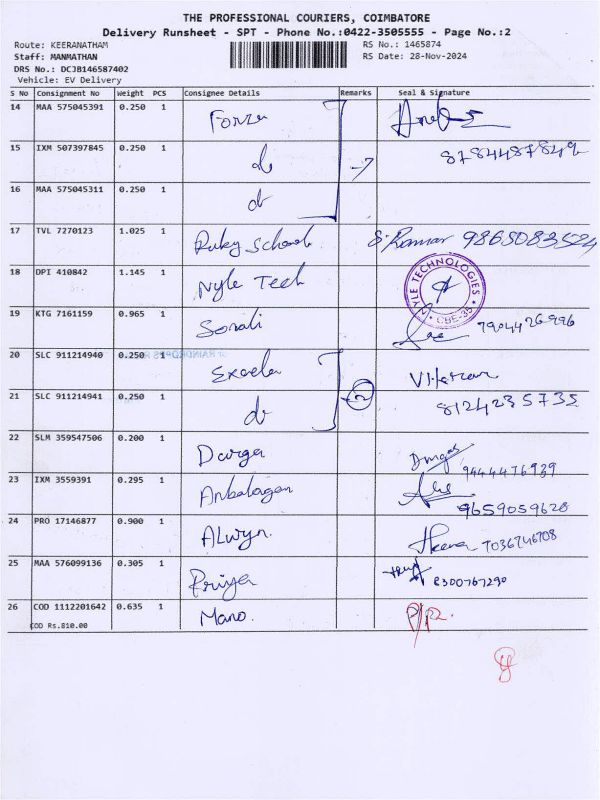 THE PROFESSIONAL COURIERS, COIMBATORE
Delivery Runsheet - SPT - Phone No.:0422-3505555 - Page No.:2
Route: KEERANATHAM
RS No.: 1465874
Staff: MANMATHAN
RS Date: 28-Nov-2024
DRS No.: DCJB146587402
Vehicle: EV Delivery
S No Consignment No Weight PCS Consignee Details Remarks Seal & Signature
14 MAA 575045391 0.250 1 Forza
15 IXM 507397845 0.250 1 do 8784487849
16 MAA 575045311 0.250 1 do
17 TVL 7270123 1.025 1 Ruby School S. Raman 9865083524
18 DPI 410842 1.145 1 Nyle Tech NYLE TECHNOLOGIES CBE-35
19 KTG 7161159 0.965 1 Sonali 7904426996
20 SLC 911214940 0.250 1
21 SLC 911214941 0.250 1 do 2 8124235735
22 SLM 359547506 0.200 1 Durga Durga 9444476939
23 IXM 3559391 0.295 1 Anbalagan 9659059628
24 PRO 17146877 0.900 1 Alwyn. Heera 7036746708
25 MAA 576099136 0.305 1 Priya 8300767290
26 COD 1112201642 0.635 1 Mano.
COD Rs.810.00